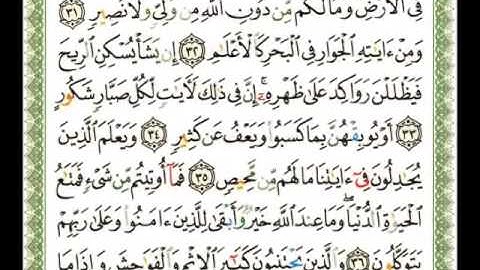 فِى ٱلْأَرْضِ وَمَا لَكُم مِّن دُونِ ٱللَّهِ مِن وَلِىٍّ وَلَا نَصِيرٍ ٣١
وَمِنْ ءَايَٰتِهِ ٱلْجَوَارِ فِى ٱلْبَحْرِ كَٱلْأَعْلَٰمِ ٣٢ إِن يَشَأْ يُسْكِنِ ٱلرِّيحَ
فَيَظْلَلْنَ رَوَاكِدَ عَلَىٰ ظَهْرِهِۦٓ ۚ إِنَّ فِى ذَٰلِكَ لَءَايَٰتٍ لِّكُلِّ صَبَّارٍ شَكُورٍ
٣٣ أَوْ يُوبِقْهُنَّ بِمَا كَسَبُوا۟ وَيَعْفُ عَن كَثِيرٍ ٣٤ وَيَعْلَمَ ٱلَّذِينَ
يُجَٰدِلُونَ فِىٓ ءَايَٰتِنَا مَا لَهُم مِّن مَّحِيصٍ ٣٥ فَمَآ أُوتِيتُم مِّن شَىْءٍ فَمَتَٰعُ
ٱلْحَيَوٰةِ ٱلدُّنْيَا ۖ وَمَا عِندَ ٱللَّهِ خَيْرٌ وَأَبْقَىٰ لِلَّذِينَ ءَامَنُوا۟ وَعَلَىٰ رَبِّهِمْ
يَتَوَكَّلُونَ ٣٦ وَٱلَّذِينَ يَجْتَنِبُونَ كَبَٰٓئِرَ ٱلْإِثْمِ وَٱلْفَوَٰحِشَ وَإِذَا مَا